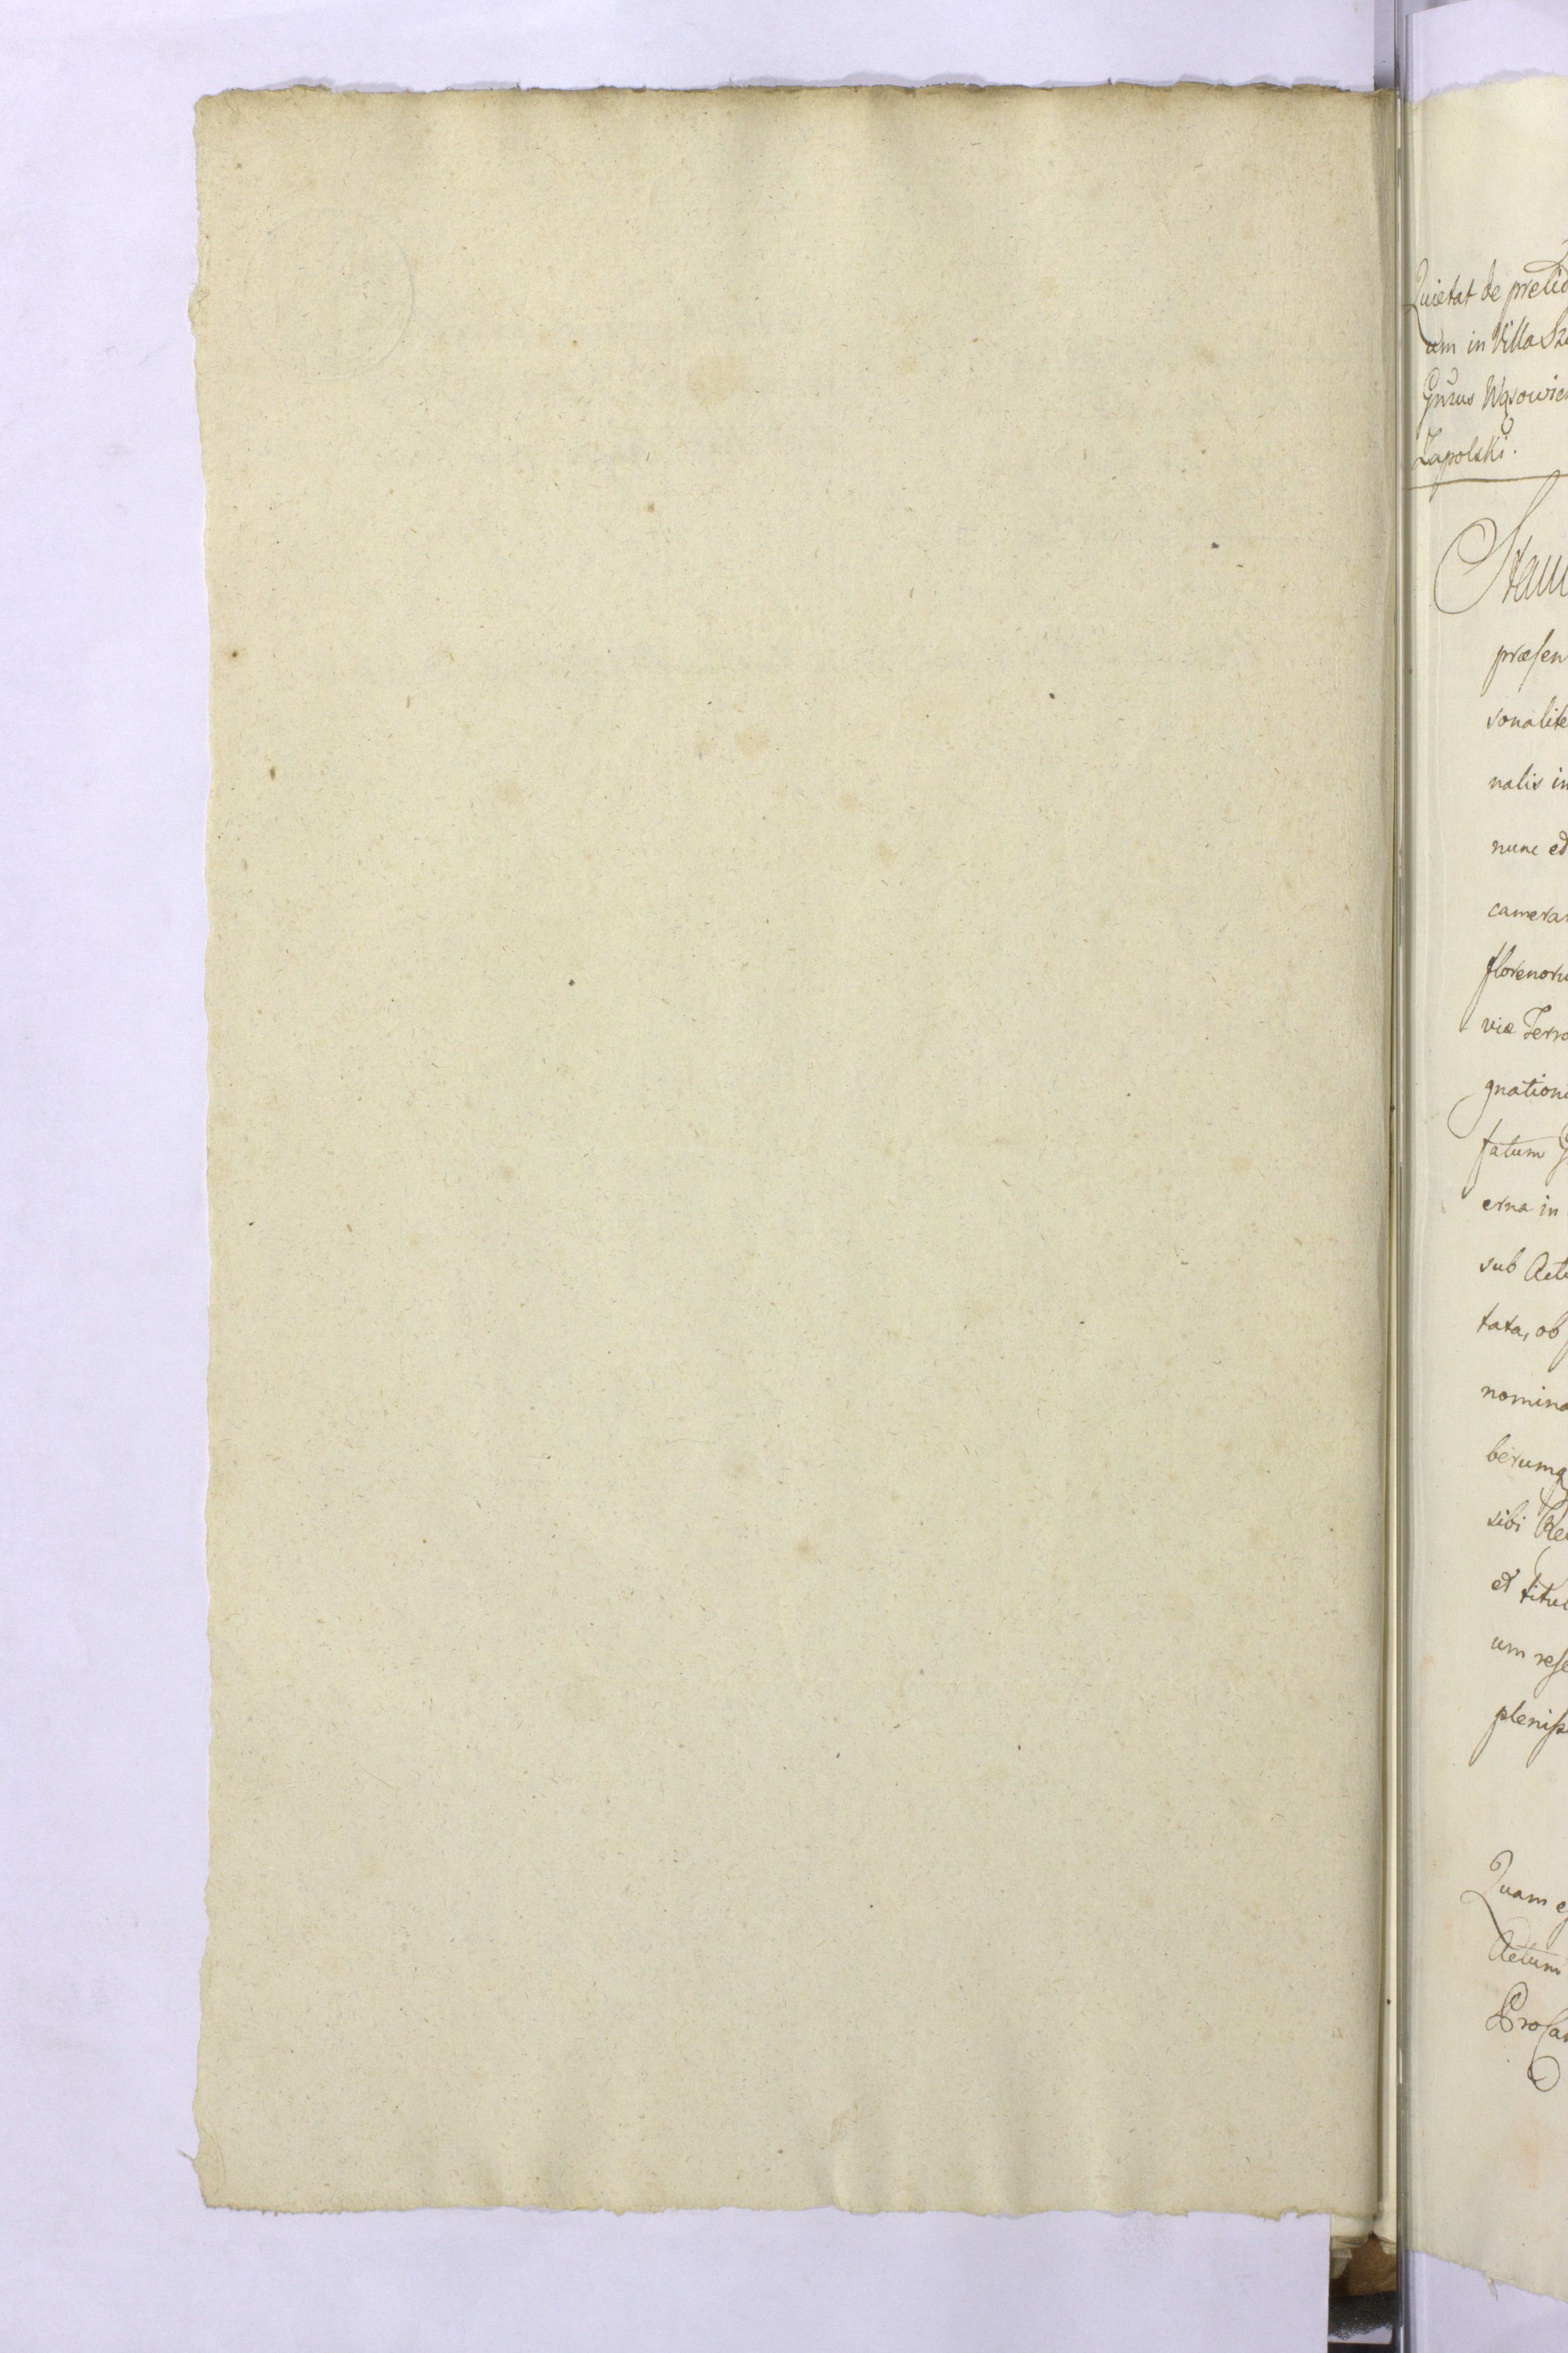 Quietat de pretio
um in Villa Sza
Gnrus Wąsowicz
Zapolski.
Stam
præsen
sonalite
nalis in
nunc ed
camerar
florenoru
viæ Terro
gnation
fatum G
erna in
sub Actu
tata, ob
nomina
berumq
sibi Re
et titul
um rese
plenisſ
Quam e
Actum
Pro